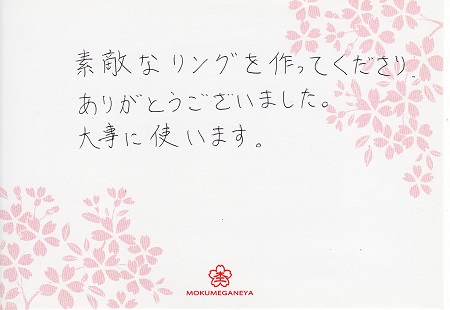 素敵なリングを作ってくださり、
ありがとうございました。
大事に使います。
MOKUMEGANEYA